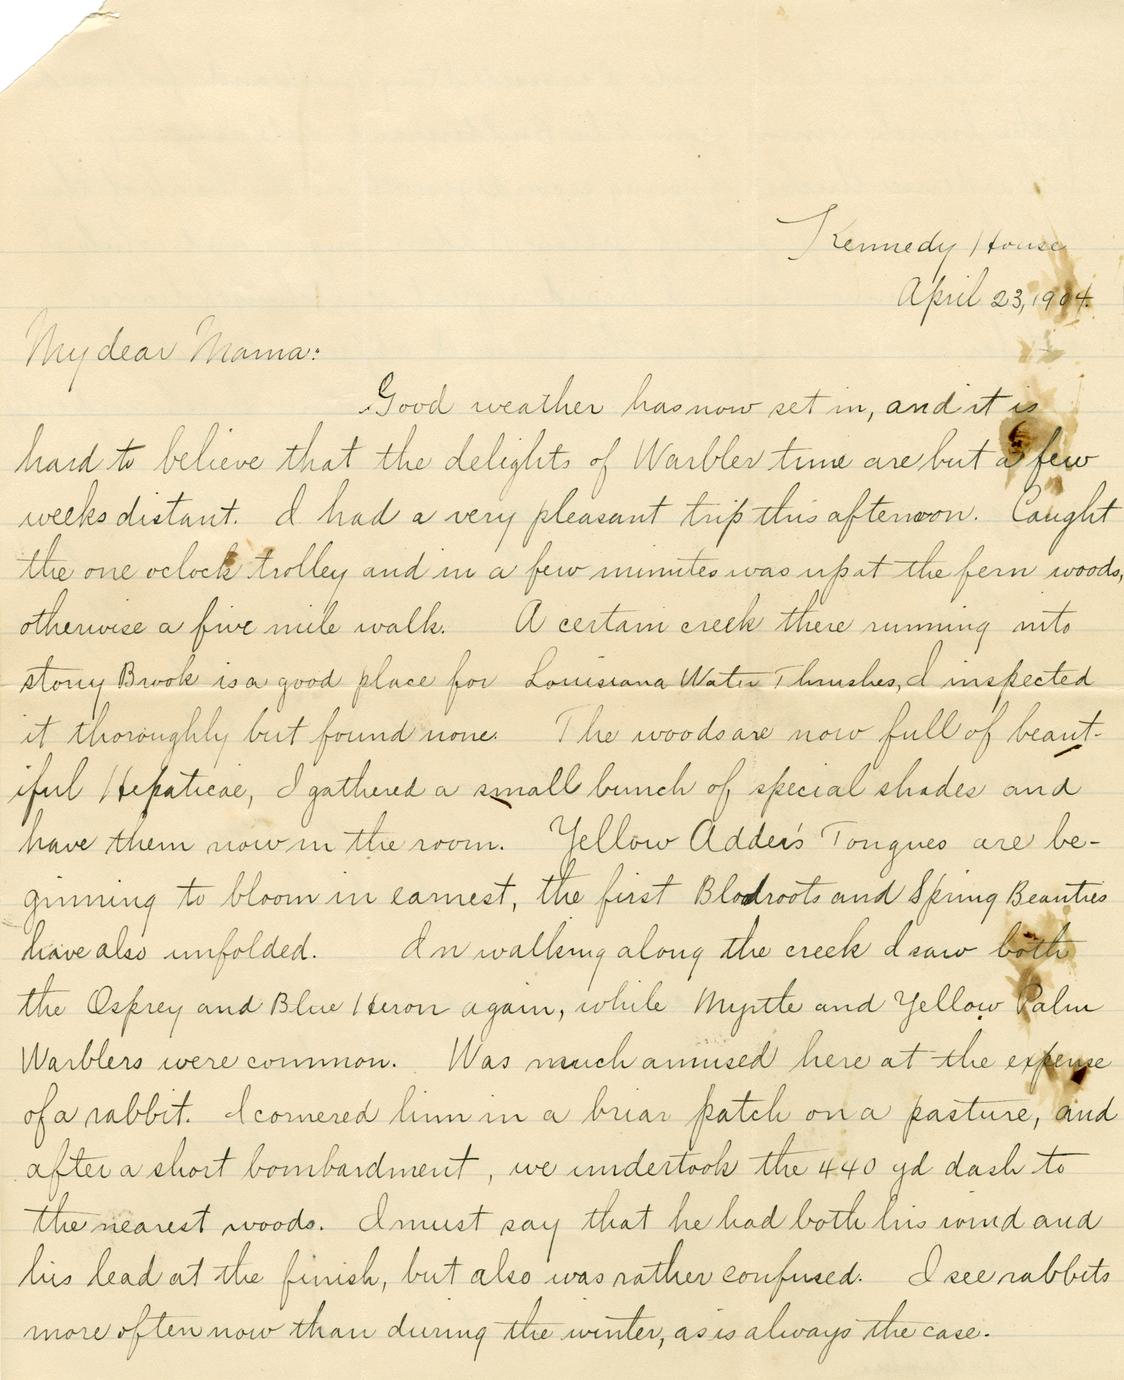 Kennedy House
April 23, 1904.
My dear Mama:
Good weather has now set in, and it is
hard to believe that the delights of Warbler time are but a few
weeks distant. I had a very pleasant trip this afternoon. Caught
the one oclock trolley and in a few minutes was up at the fern woods,
otherwise a five mile walk. A certain creek there running into
stony Brook is a good place for Louisiana Water Thrushes, I inspected
it thoroughly but found none. The woods are now full of beaut-
iful Hepaticae, I gathered a small bunch of special shades and
have them now in the room. Yellow Adder's Tongues are be-
ginning to bloom in earnest, the first Bloodroots and Spring Beauties
have also unfolded. In walking along the creek I saw both
the Osprey and Blue Heron again, while Myrtle and Yellow Palm
Warblers were common. Was much amused here at the expense
of a rabbit. I cornered him in a briar patch on a pasture, and
after a short bombardment, we undertook the 440 yd dash to
the nearest woods. I must say that he had both his wind and
his lead at the finish, but also was rather confused. I see rabbits
more often now than during the winter, as is always the case.